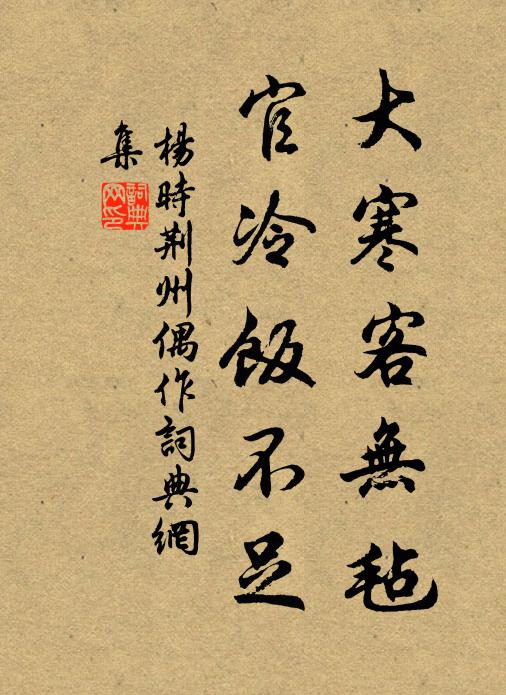 大寒客無氈
官冷飯不足
楊時荆州偶作詞典網
集
詞典網印